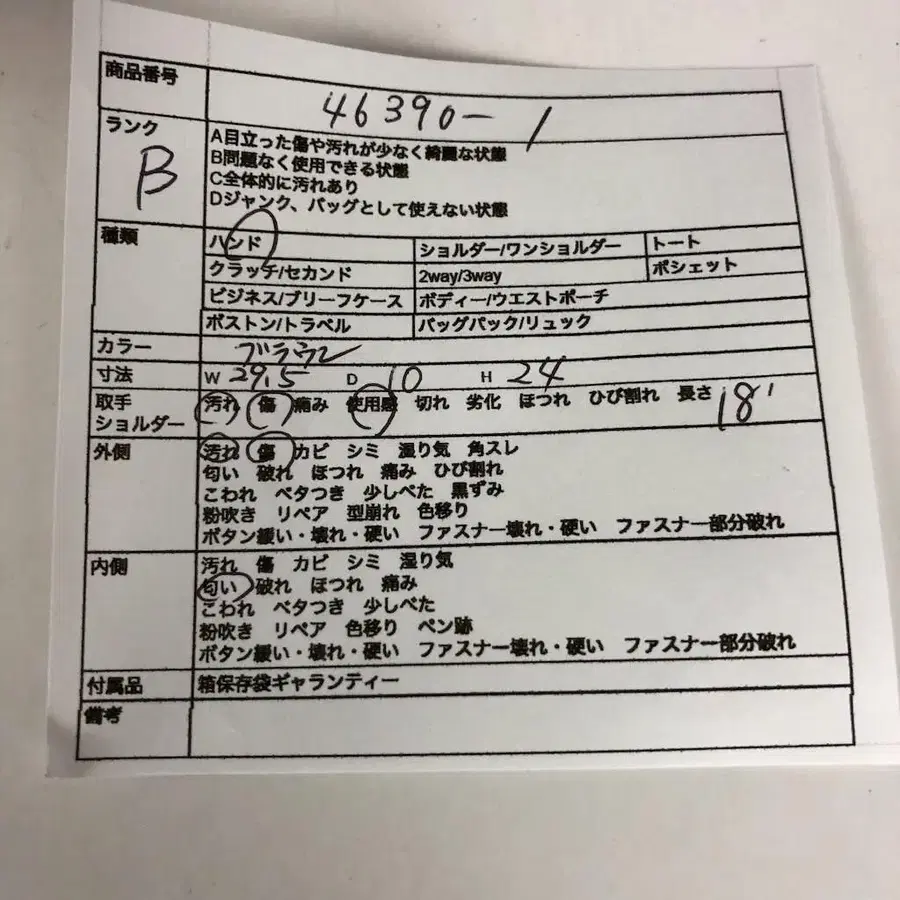 商品番号 46390-1
ランク B
A目立った傷や汚れが少なく綺麗な状態
B問題なく使用できる状態
C全体的に汚れあり
Dジャンク、バッグとして使えない状態
種類 ハンド ショルダー/ワンショルダー トート
クラッチ/セカンド 2way/3way ポシェット
ビジネス/ブリーフケース ボディー/ウエストポーチ
ボストン/トラベル バッグパック/リュック
カラー ブラウン
寸法 W 29.5 D 10 H 24
取手 汚れ 傷 痛み 使用感 切れ 劣化 ほつれ ひび割れ 長さ 18'
ショルダー
外側 汚れ 傷 カビ シミ 湿り気 角スレ
匂い 破れ ほつれ 痛み ひび割れ
こわれ ベタつき 少しべた 黒ずみ
粉吹き リペア 型崩れ 色移り
ボタン緩い・壊れ・硬い ファスナー壊れ・硬い ファスナー部分破れ
内側 汚れ 傷 カビ シミ 湿り気
匂い 破れ ほつれ 痛み
こわれ ベタつき 少しべた
粉吹き リペア 色移り ペン跡
ボタン緩い・壊れ・硬い ファスナー壊れ・硬い ファスナー部分破れ
付属品 箱保存袋ギャランティー
備考